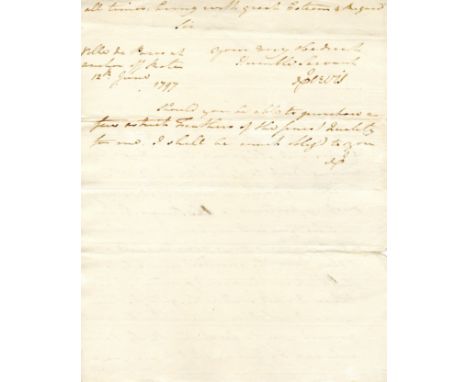 all times, being with great Esteem & Regard
Sir
Ville de Paris at your very obedient
anchor off humble Servant
12th June
1797
Should you be able to purchase a
few ostrich Feathers of the first Quality
for me, I shall be much oblig'd to you